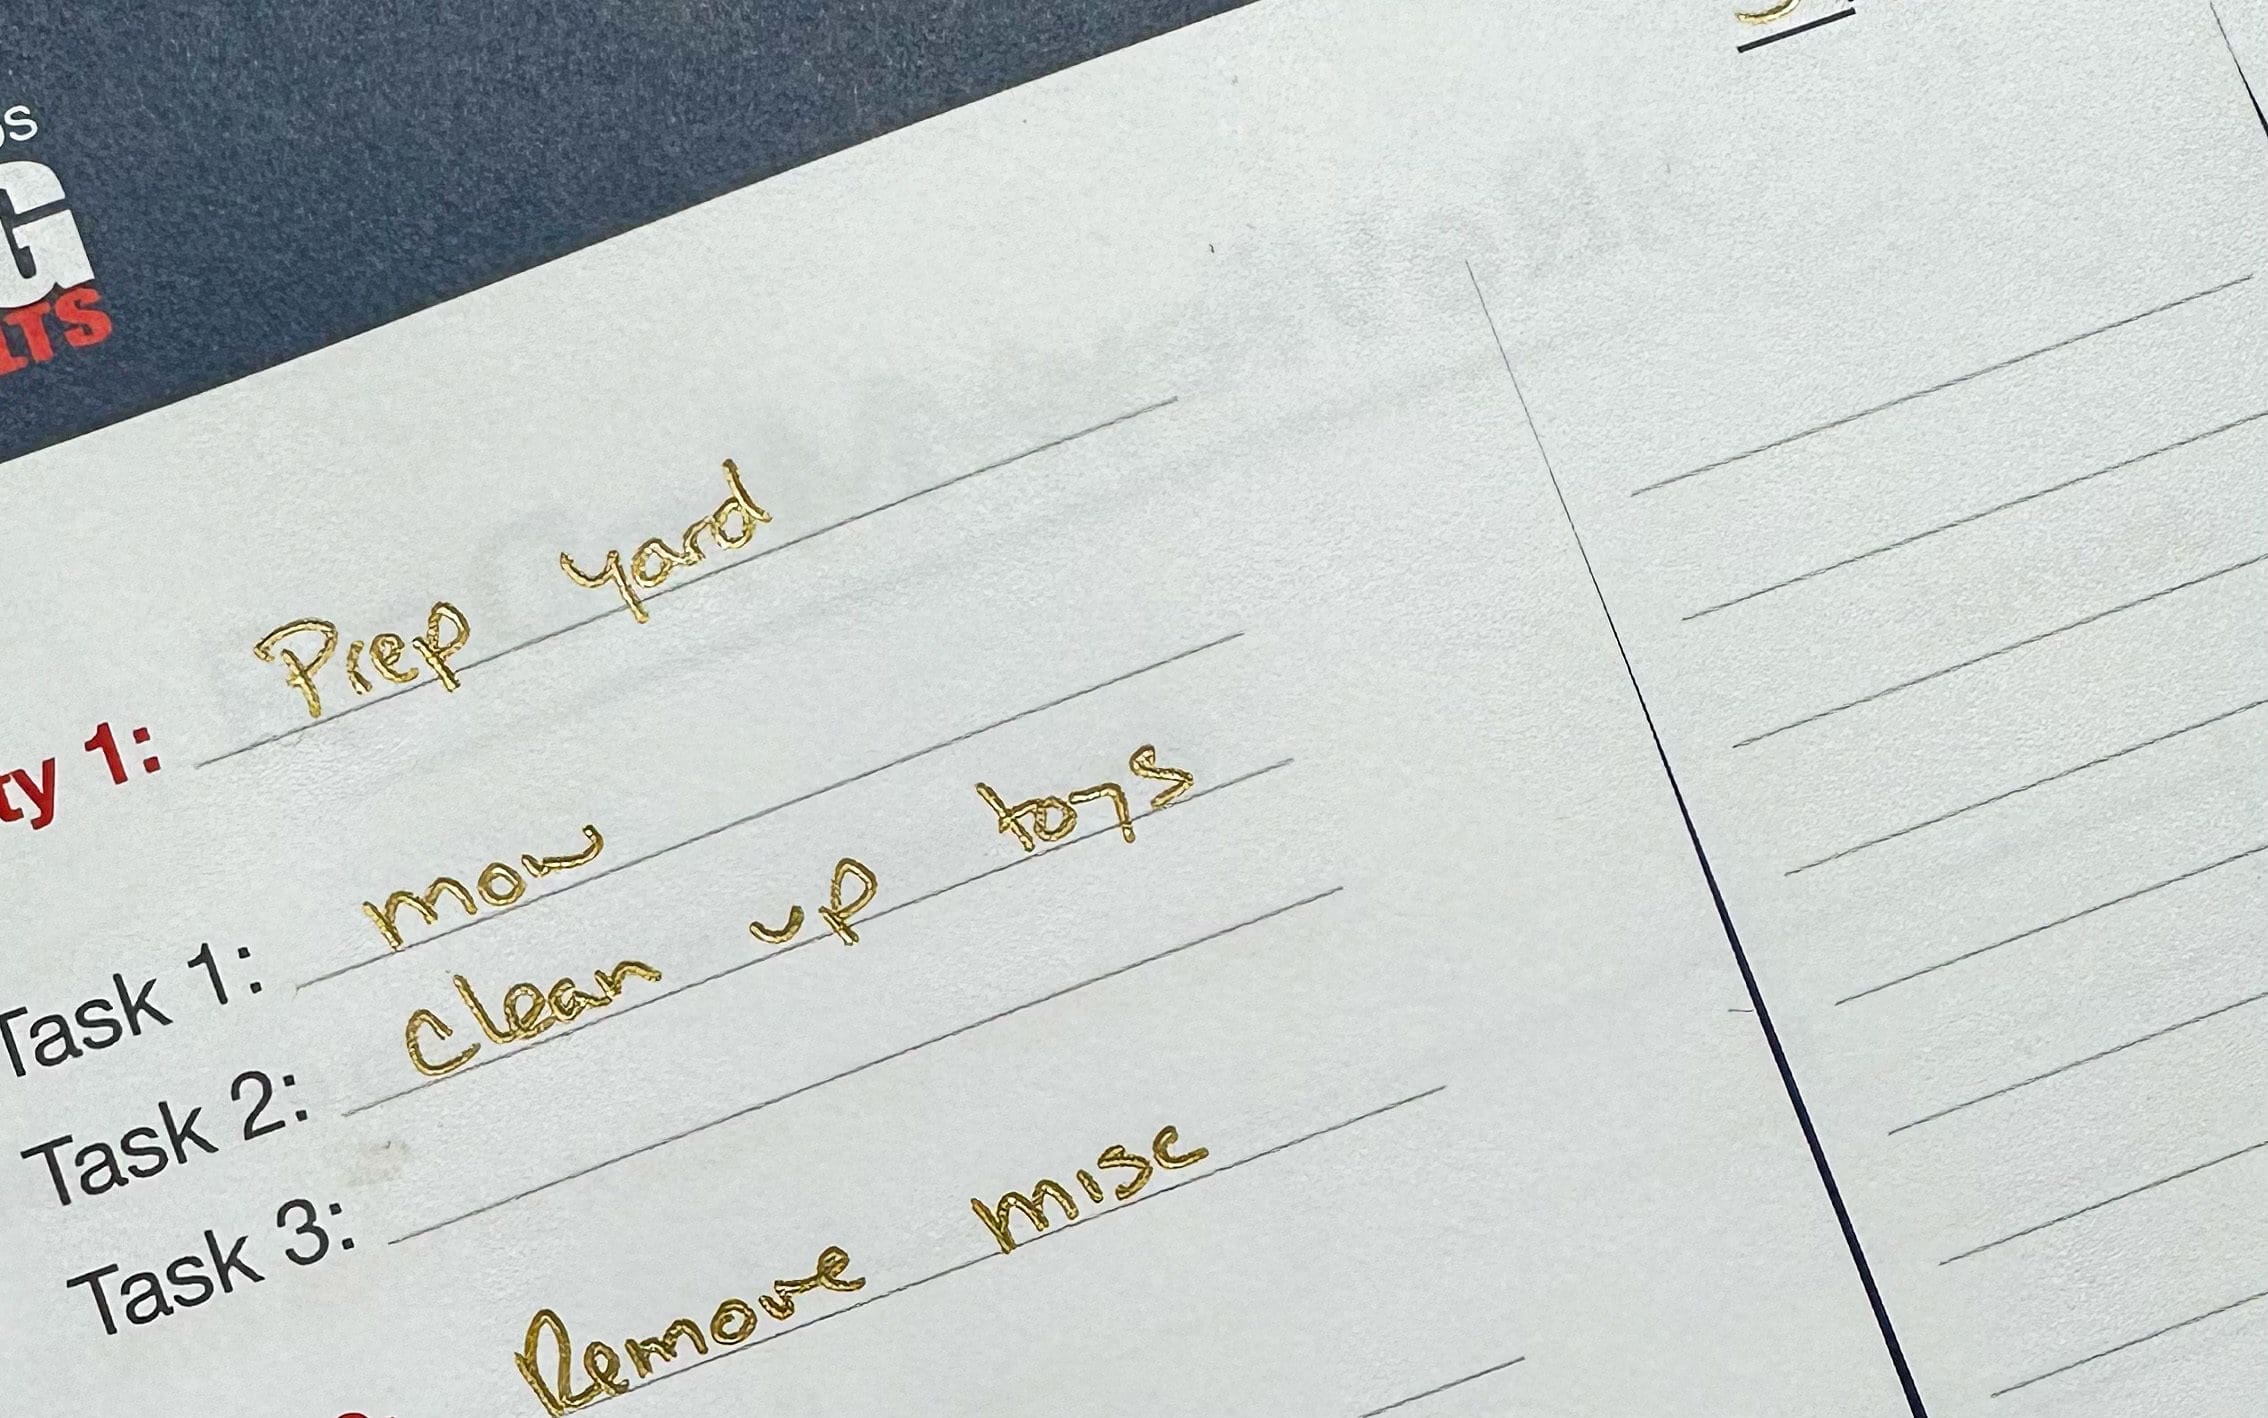 G
ty 1: Prep yard
Task 1: mow
Task 2: Clean up toys
Task 3:
Remove misc